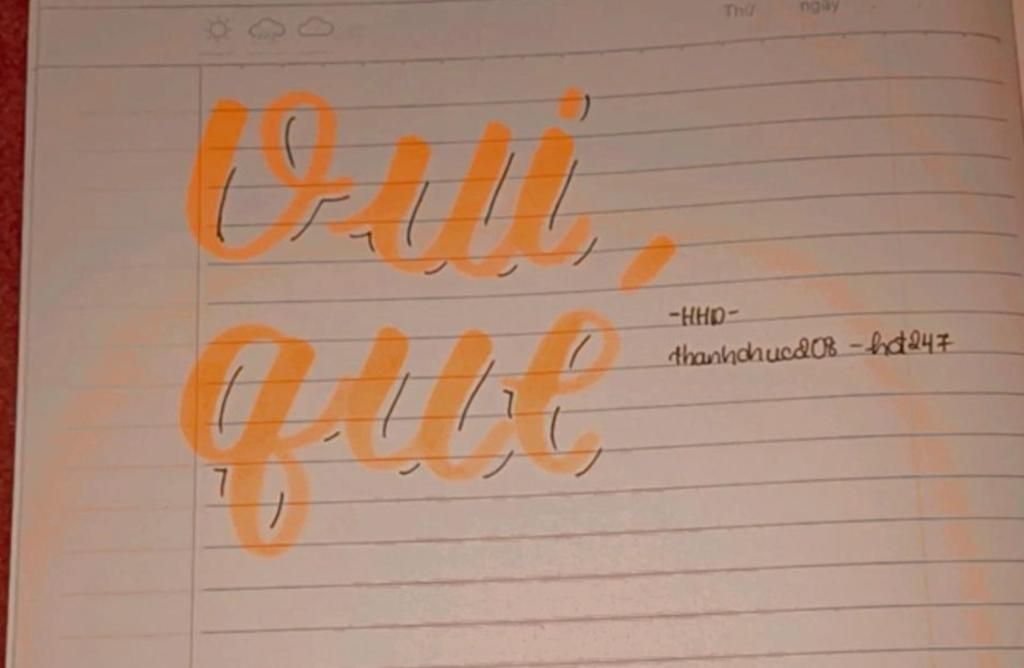 Thứ ngày
vui,
que
-HHD-
thanhchuc208 - hot247